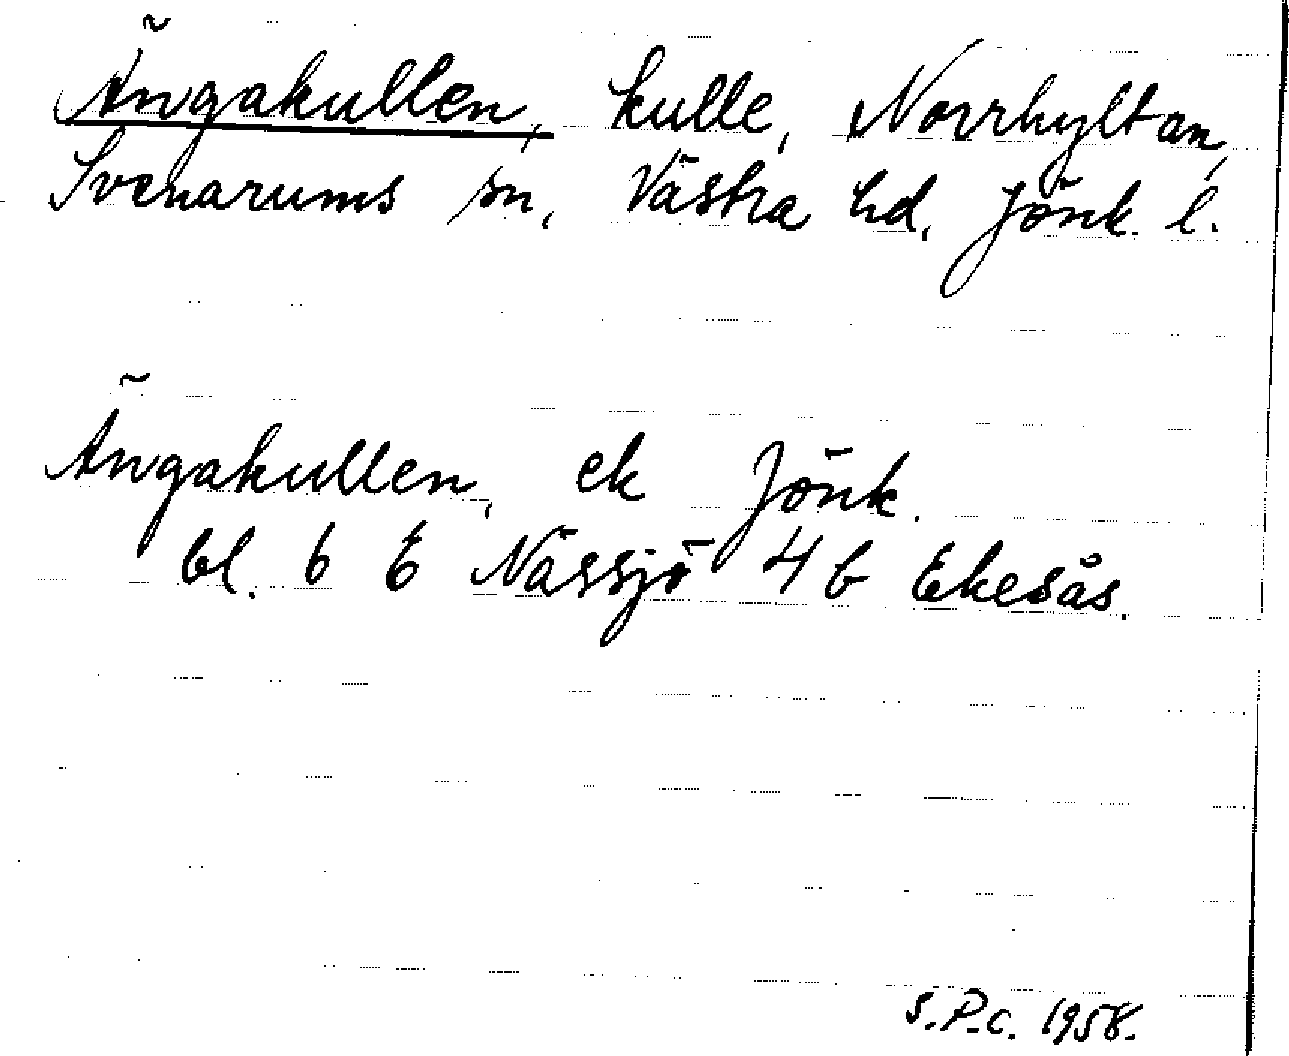 Ängakullen, kulle, Norrhyltan,
Svenarums sn, Västra hd, Jönk. l.
Ängakullen, ek Jönk.
bl. 6 E Nässjö 4 b Ekesås.
S.P.C. 1958.